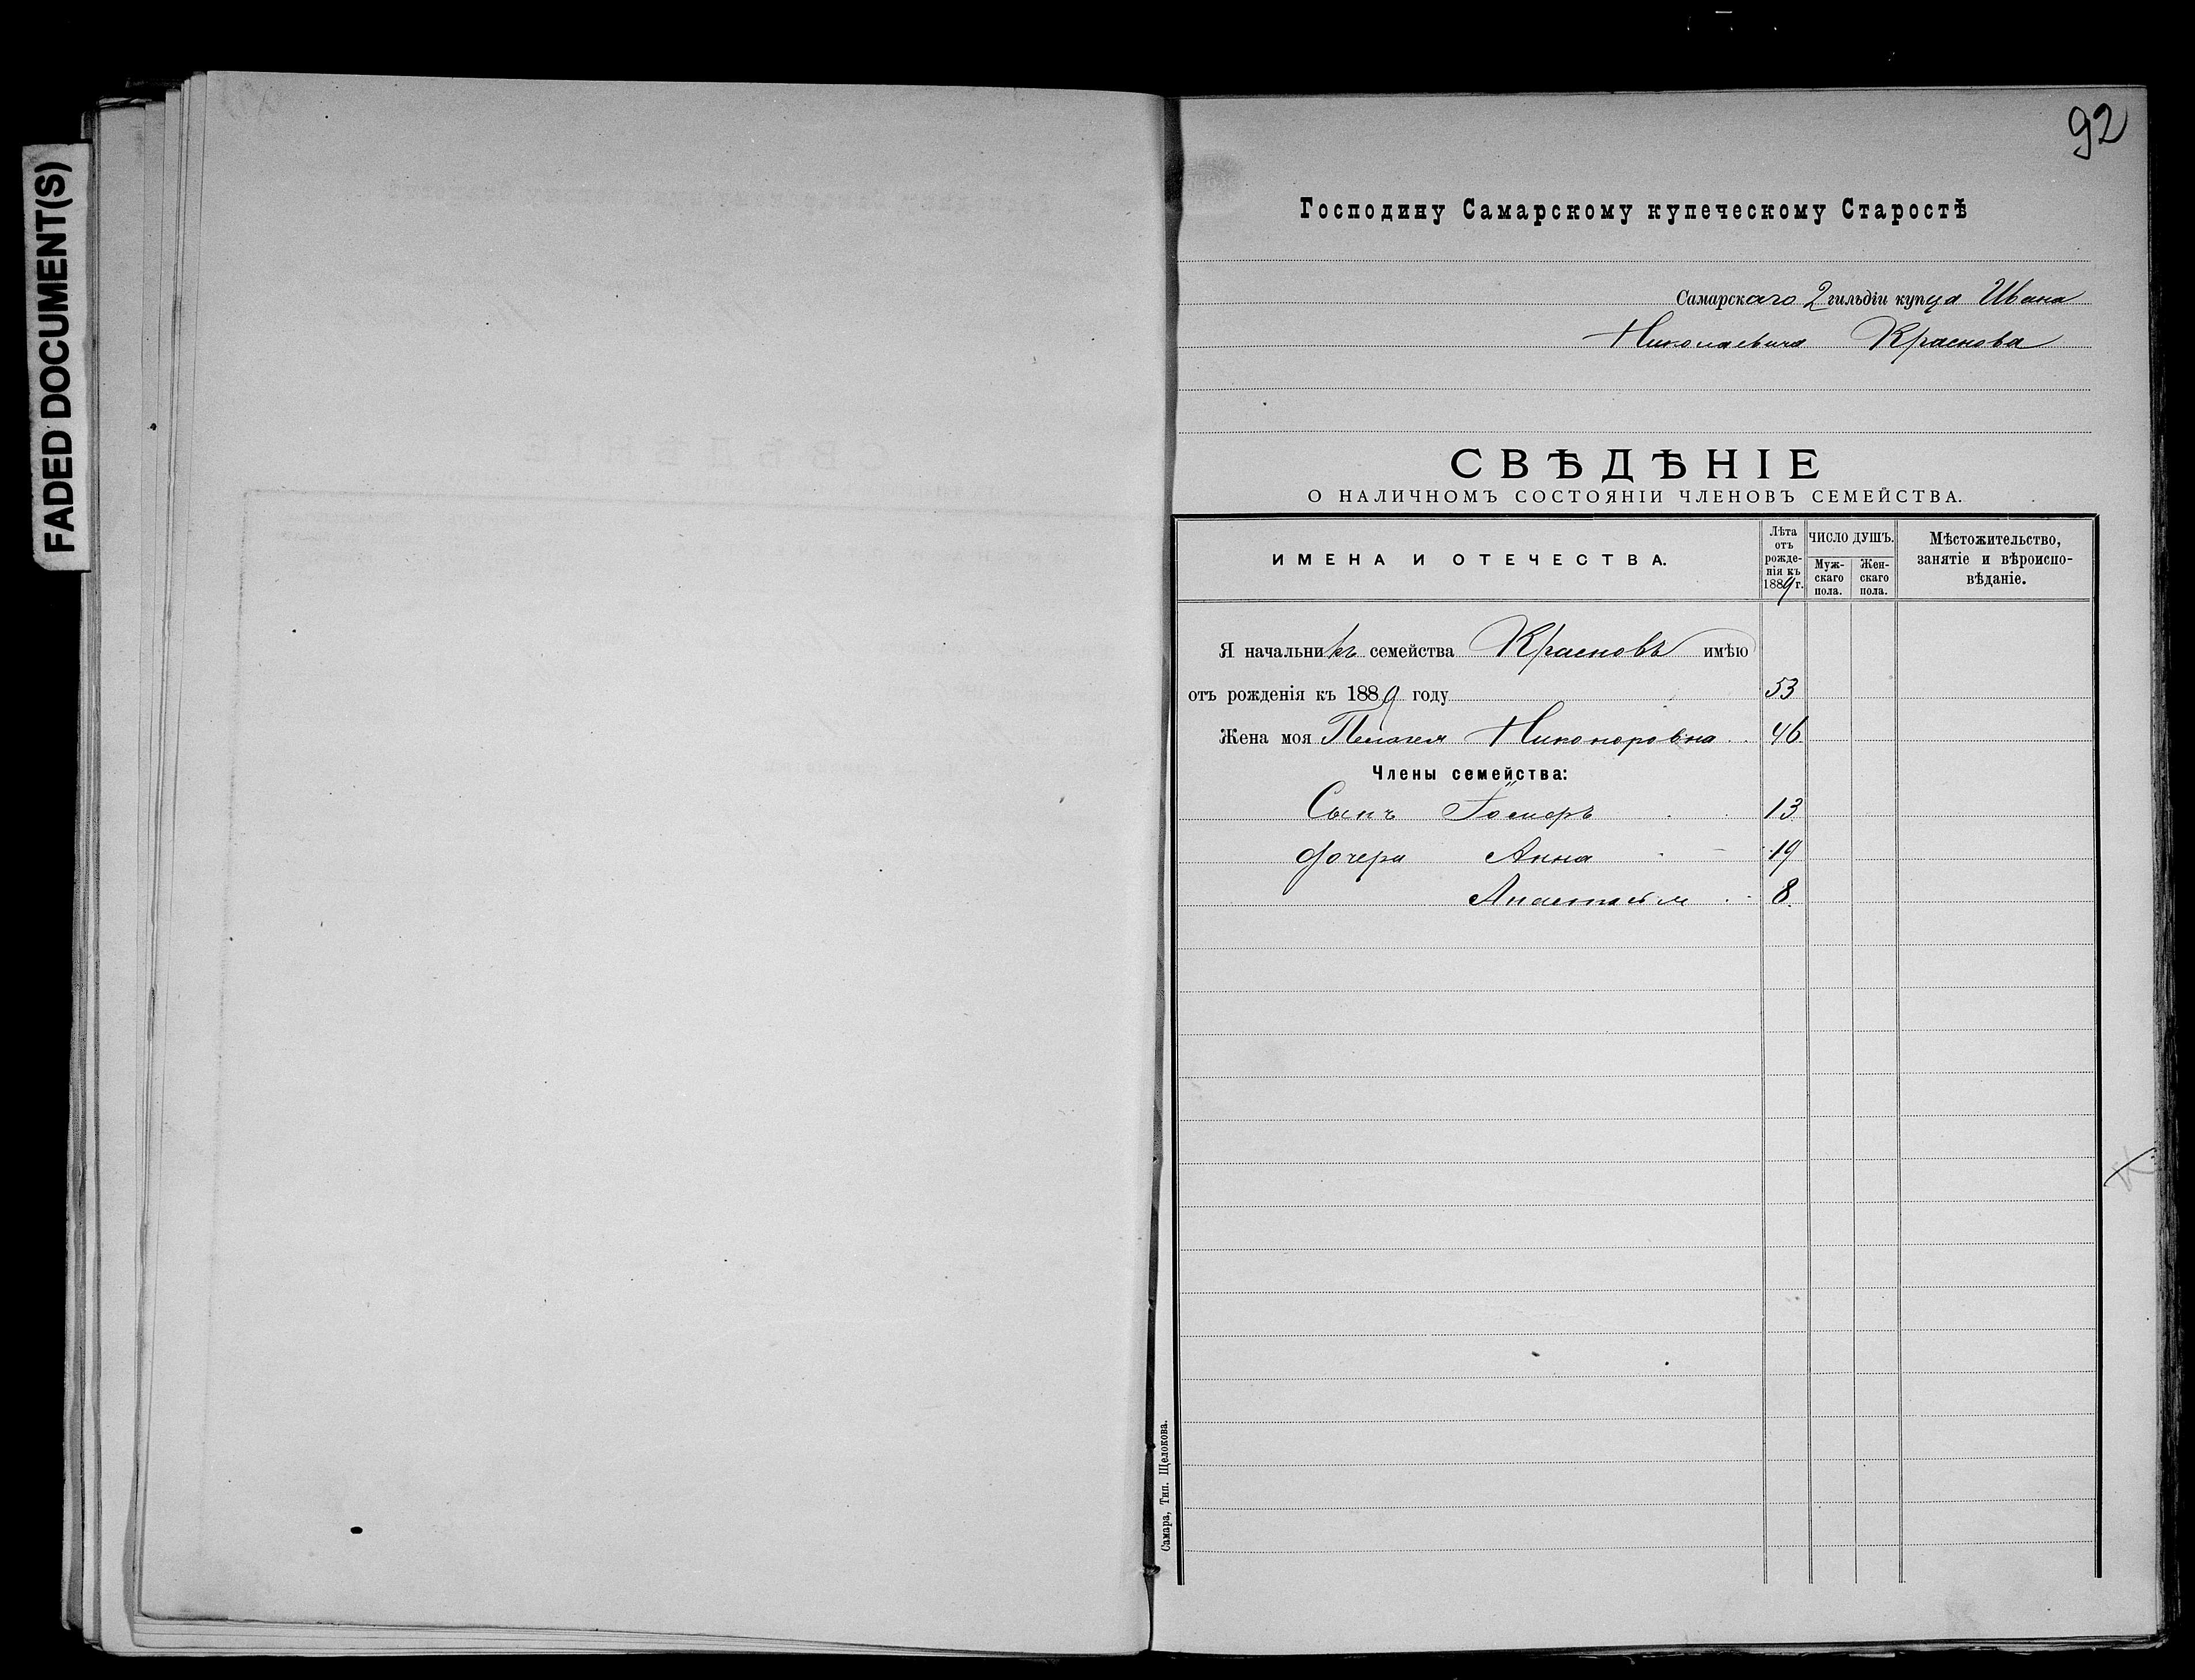 FADED DOCUMENT(S)
92
Господину Самарскому купеческому Старостѣ
Самарскаго 2 гильдіи купца Ивана
Николаевича Краснова
СВѢДѢНІЕ
О НАЛИЧНОМЪ СОСТОЯНІИ ЧЛЕНОВЪ СЕМЕЙСТВА.
ИМЕНА И ОТЕЧЕСТВА.
Лѣта
отъ
рожде-
нія къ
1889 г.
ЧИСЛО ДУШЪ.
Муж-
скаго
пола.
Жен-
скаго
пола.
Мѣстожительство,
занятіе и вѣроиспо-
вѣданіе.
Я начальникъ семейства Красновъ имѣю
отъ рожденія къ 1889 году 53
Жена моя Пелагея Никоноровна 46
Члены семейства:
Сынъ 13
дочери Анна 19
Анастасія 8
Самара, Тип. Щелокова.